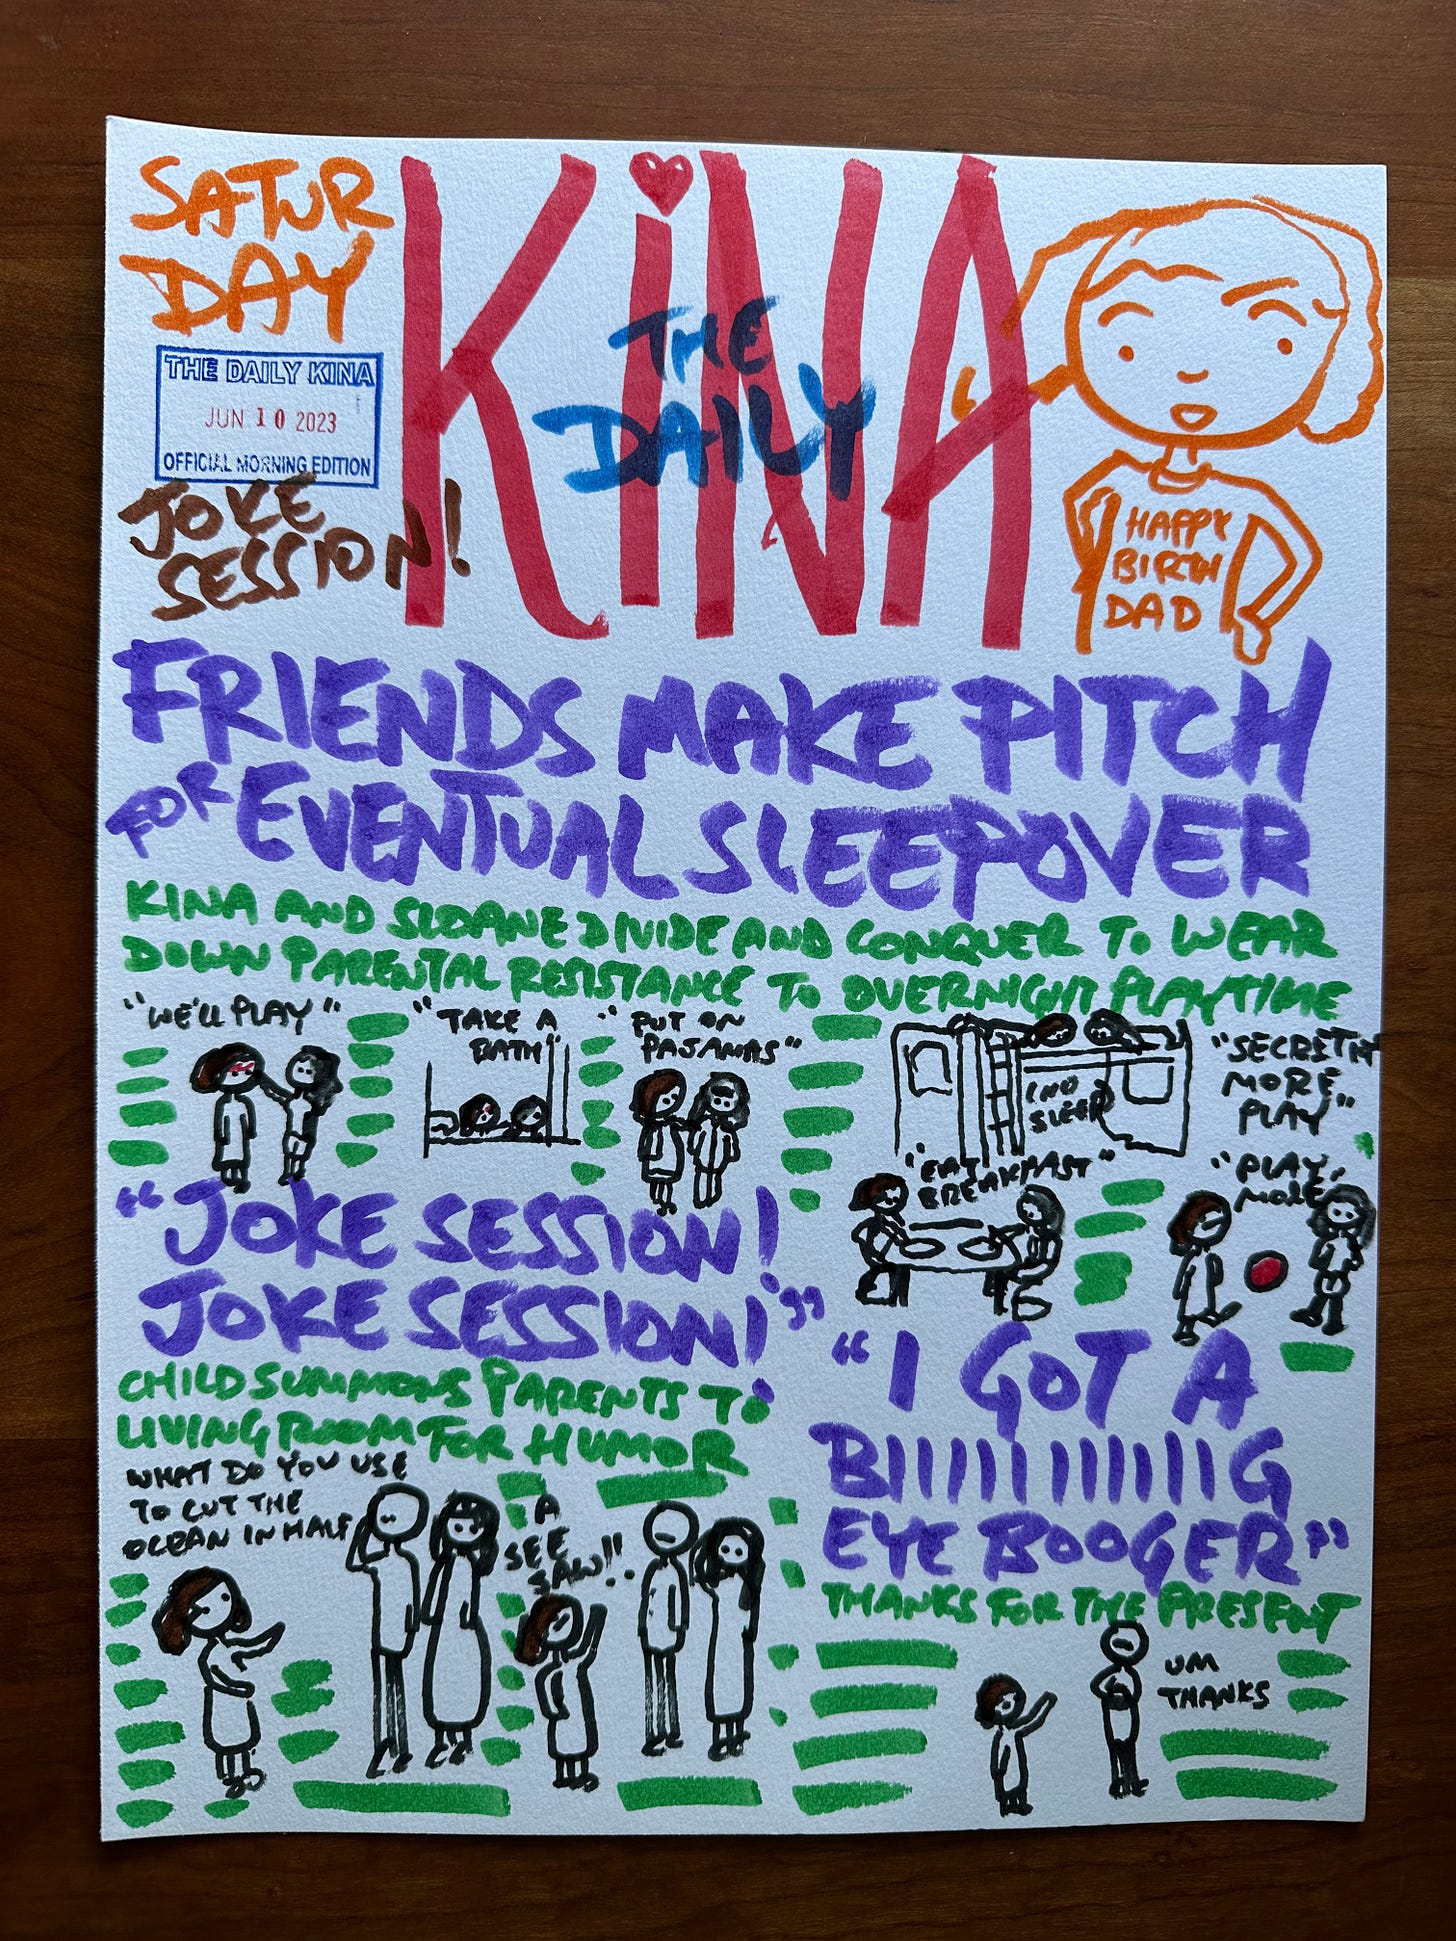 SATUR
DAY
THE DAILY KINA
JUN 10 2023
OFFICIAL MORNING EDITION
JOKE
SESSION!
KiNA
THE
DAILY
HAPPY
BIRTH
DAD
FRIENDS MAKE PITCH
FOR EVENTUAL SLEEPOVER
KINA AND SLOANE DIVIDE AND CONQUER TO WEAR
DOWN PARENTAL RESISTANCE TO OVERNIGHT PLAYTIME
"WE'LL PLAY"
"TAKE A
BATH"
"PUT ON
PAJAMAS"
(NO
SLEEP)
"SECRETLY
MORE
PLAY"
"EAT
BREAKFAST"
"PLAY
MORE"
"JOKE SESSION!
JOKE SESSION!"
CHILD SUMMONS PARENTS TO
LIVING ROOM FOR HUMOR
WHAT DO YOU USE
TO CUT THE
OCEAN IN HALF
A
SEE
SAW!!
"I GOT A
BIIIIIIIIIIIG
EYE BOOGER"
THANKS FOR THE PRESENT
UM
THANKS